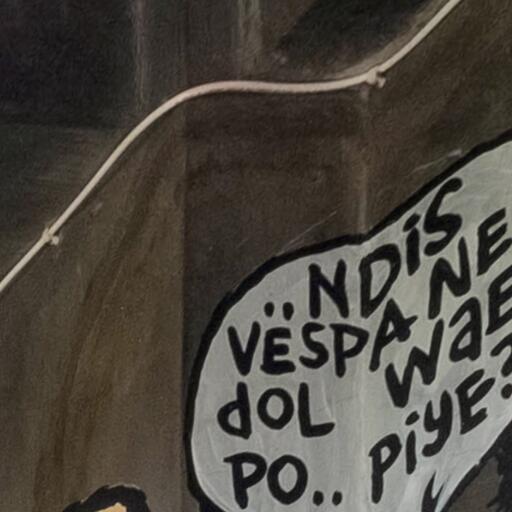 ..NDiS
VËSPA NE
dOL WaE
PO.. PiYE?